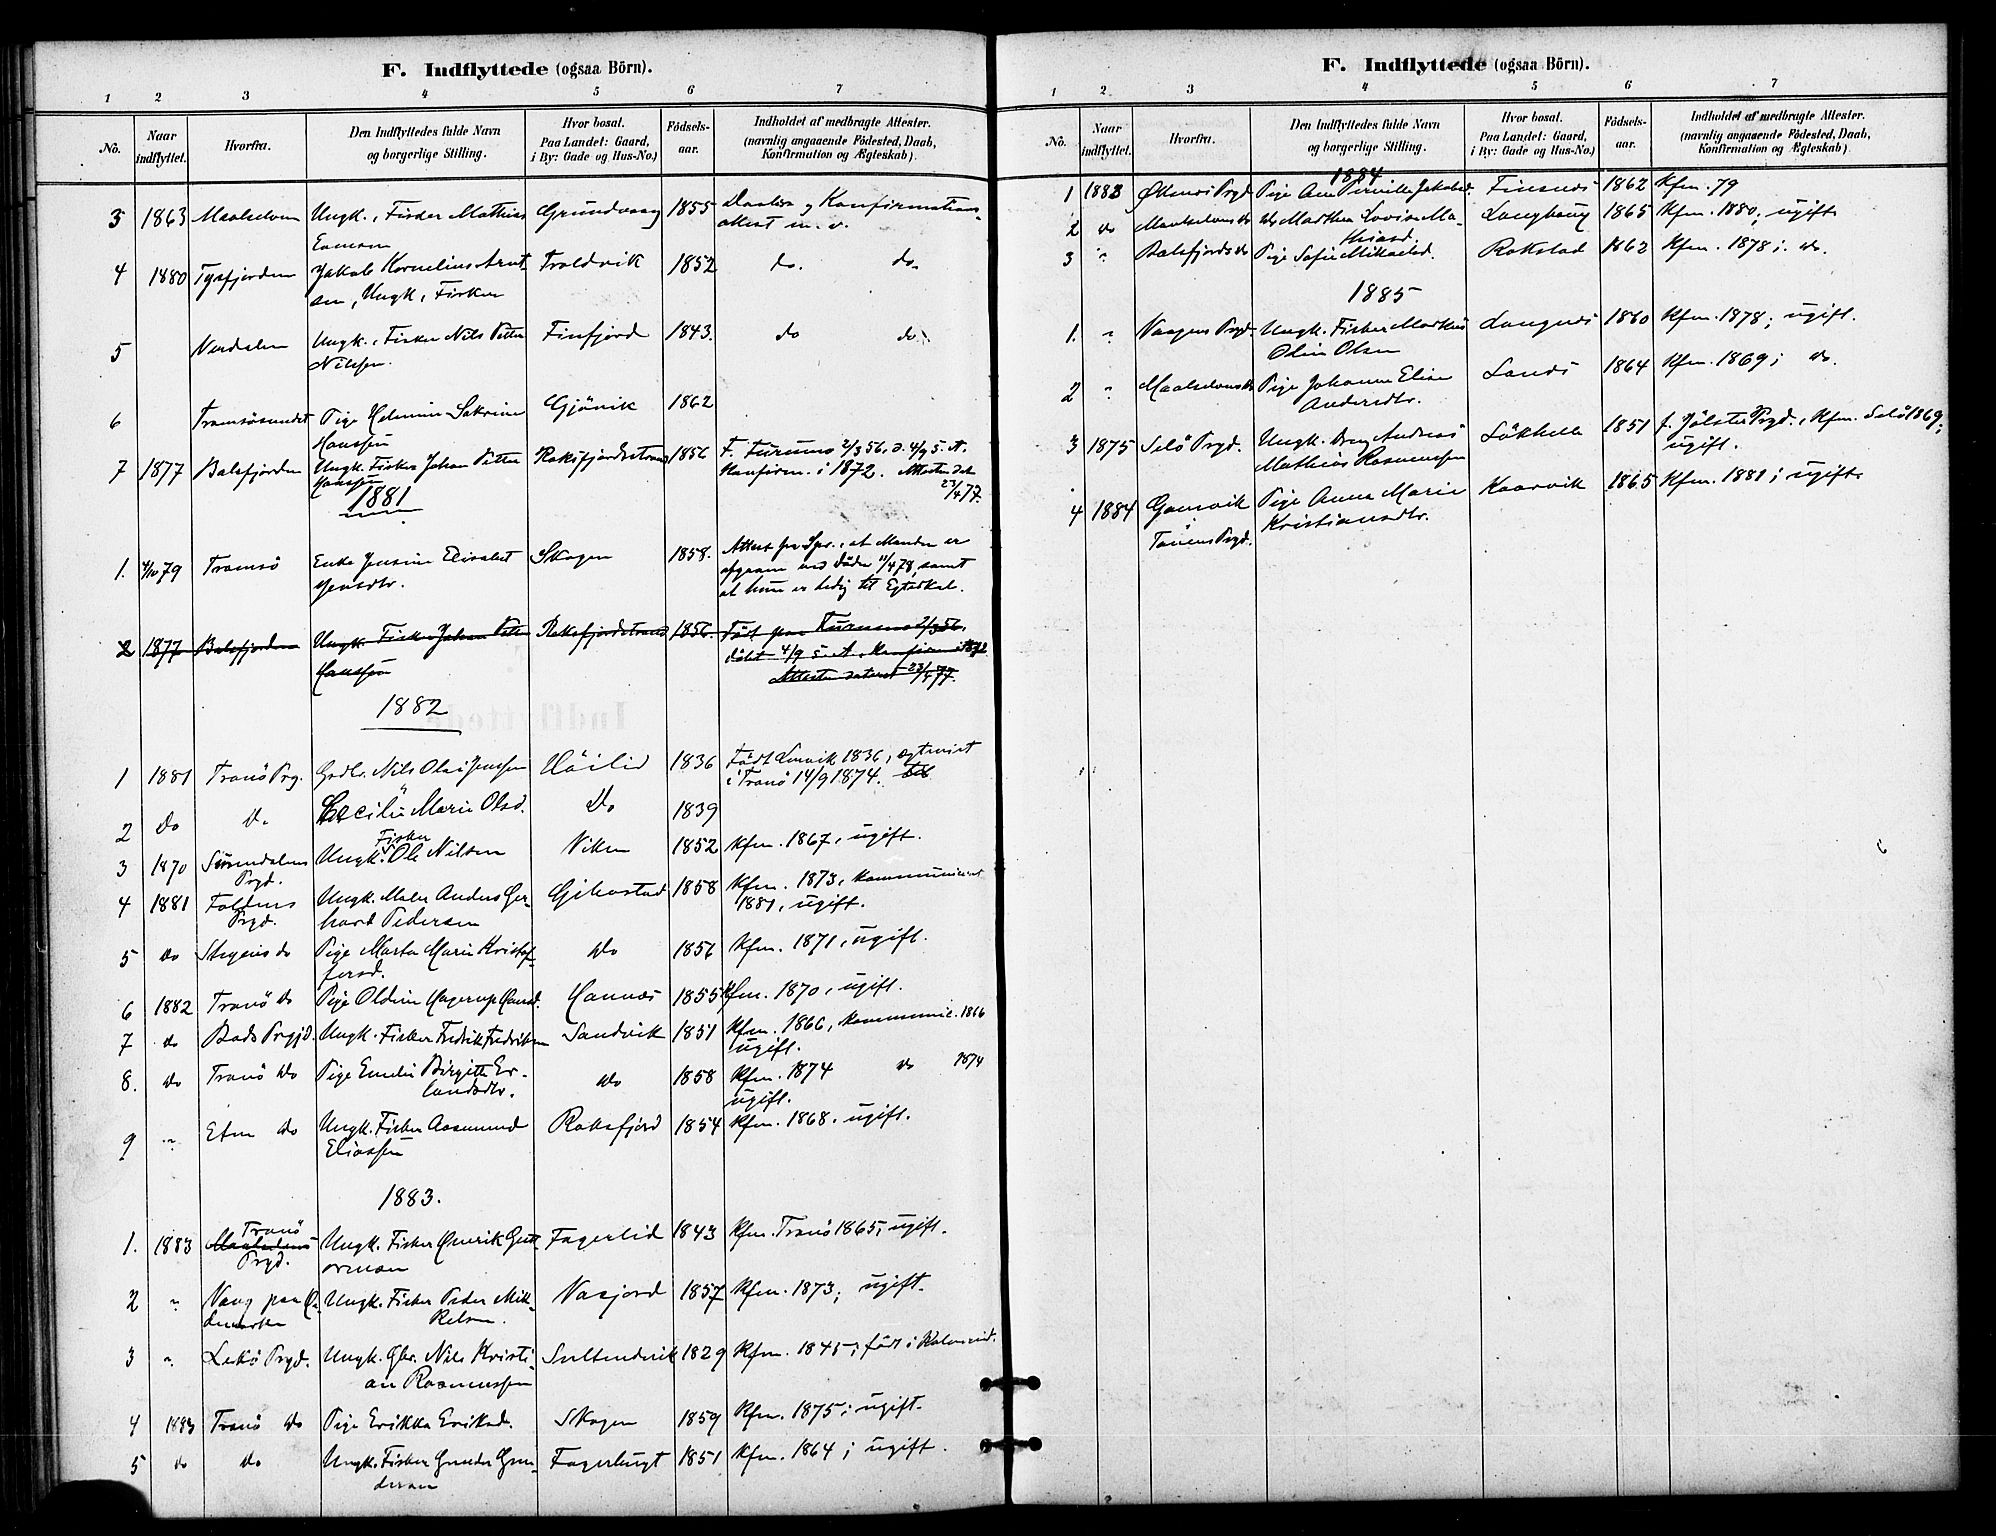 F. Indflyttede (ogsaa Börn).
1 2 3 4 5 6 7
No.
Naar indflyttet.
Hvorfra.
Den Indflyttedes fulde Navn og borgerlige Stilling.
Hvor bosat. Paa Landet: Gaard, i By: Gade og Hus-No.)
Födsels-aar.
Indholdet af medbragte Attester. (navnlig angaaende Födested, Daab, Konfirmation og Ægteskab).
3 1863 Ungk., Fisker Mathias Grundvaag 1855 Konfirmations-
attest m. v.
4 1880 Tysfjorden Jakob Kornelius Arnt- Troldvik 1852 do. do.
sen, Ungk., Fisker
5 Verdalen Ungk., Fisker Nils Petter Finfjord 1843. do do.
Nilssen.
6 Tromsösundet Pige Sakrine Gjövik 1862
Hanssen
7 1877 Balsfjorden Ungk. Fisker Johan Petter Raksfjordstrand 1856 F. Furumo 2/3 56, d. 4/9 s. A.
Hanssen Konfirm. i 1872. Attesten dat
23/4 77.
1881
1. 4/10 79 Tromsö Enke Jensine Elisabet Skogen 1858. Attest fra Spr. at Manden er
Jensdtr. afgaaen ved Döden 11/4 78, samt
at hun er ledig til Egteskab.
2 1877 Balsfjorden Ungk. Fisker Johan Petter Raksfjordstrand 1856. Födt paa Furumo 2/3 56,
Hanssen döbt 4/9 s. A. Konfirm. i 1872.
Attesten dateret 23/4 77.
1882
1 1881 Tranö Prg. Grdbr. Nils Olai Jenssen Höilid 1836 Födt Lenvik 1836, egteviet
i Tranö 14/9 1874.
2 Do Do Cecilie Marie Olsd. Do 1839
Fisker
3 1870 Surendalens Ungk. Ole Nilsen Viken 1852 Kfm. 1867, ugift.
Prgd.
4 1881 Foldens Ungk. Maler Anders Ger- Gibostad 1858 Kfm. 1873, kommuniceret
Prgd. hard Pedersen 1881, ugift.
5 do Stegens do Pige Marta Marie Kristof- do 1856 Kfm. 1871, ugift.
fersd.
6 1882 Tranö do Pige Oldine Hagerup Hansd. Hannæs 1855 Kfm. 1870, ugift.
7 do Bodö Prgjd. Ungk. Fisker Fredrik Fredriksen Sandvik 1851 Kfm. 1866, kommunic. 1866
ugift.
8. do Tranö do Pige Emelie Birgitte Er- do 1858 Kfm. 1874 do 1874
landsdtr. ugift.
9 " Etne do Ungk. Fisker Aasmund Raksfjord 1854 Kfm. 1868, ugift.
Eliassen
1883.
Tranö
1. 1883 Maalselvens Ungk. Fisker Henrik Gutt- Fagerlid 1843 Kfm. Tranö 1865, ugift.
Prgd. ormsen
2 " Vang paa He- Ungk. Fisker Peder Mik- Vasjord 1857 Kfm. 1873; ugift.
demarken kelsen.
3 " Lekö Prgd. Ungk. Gbr. Nils Kristi- Sultenvik 1829 Kfm. 1845; födt i Kolvereid.
an Rasmussen
4 1883 Tranö do Pige Erikka Eriksd. Skogen 1859 Kfm. 1875; ugift.
5 do do Ungk. Fisker Gunder Gun- Fagerbugt 1851 Kfm. 1864; ugift.
dersen
F. Indflyttede (ogsaa Börn).
1 2 3 4 5 6 7
No.
Naar indflyttet.
Hvorfra.
Den Indflyttedes fulde Navn og borgerlige Stilling.
Hvor bosat. Paa Landet: Gaard, i By: Gade og Hus-No.)
Födsels-aar.
Indholdet af medbragte Attester. (navnlig angaaende Födested, Daab, Konfirmation og Ægteskab).
1884
1 1883 Öksnes Prgd Pige Ane Pernille Jakobsd. Finsnes 1862 Kfm. 79
2 do Maalselvens do do Marthea Lovise Ma- Langhaug 1865 Kfm. 1880; ugift
thiasd.
3 " Balsfjords do Pige Sofie Mikaelsd. Rokstad 1862 Kfm. 1878; do.
1885
1. " Vaagens Prgd. Ungk. Fisker Markus Langnes 1860 Kfm. 1878; ugift.
Olin Olsen
2 " Maalselvens do Pige Johanne Elise Sandö 1864 Kfm. 1869; do.
Andersdtr.
3 1875 Selö Prgd. Ungk. Andreas Lökhelle 1851 f. Jölster Prgd., Kfm. Selö 1869;
Mathias Rasmussen ugift.
4 1884 Gamvik Pige Anna Marie Kaarvik 1865 Kfm. 1881; ugift.
Tanens Prgd. Kristiansdtr.